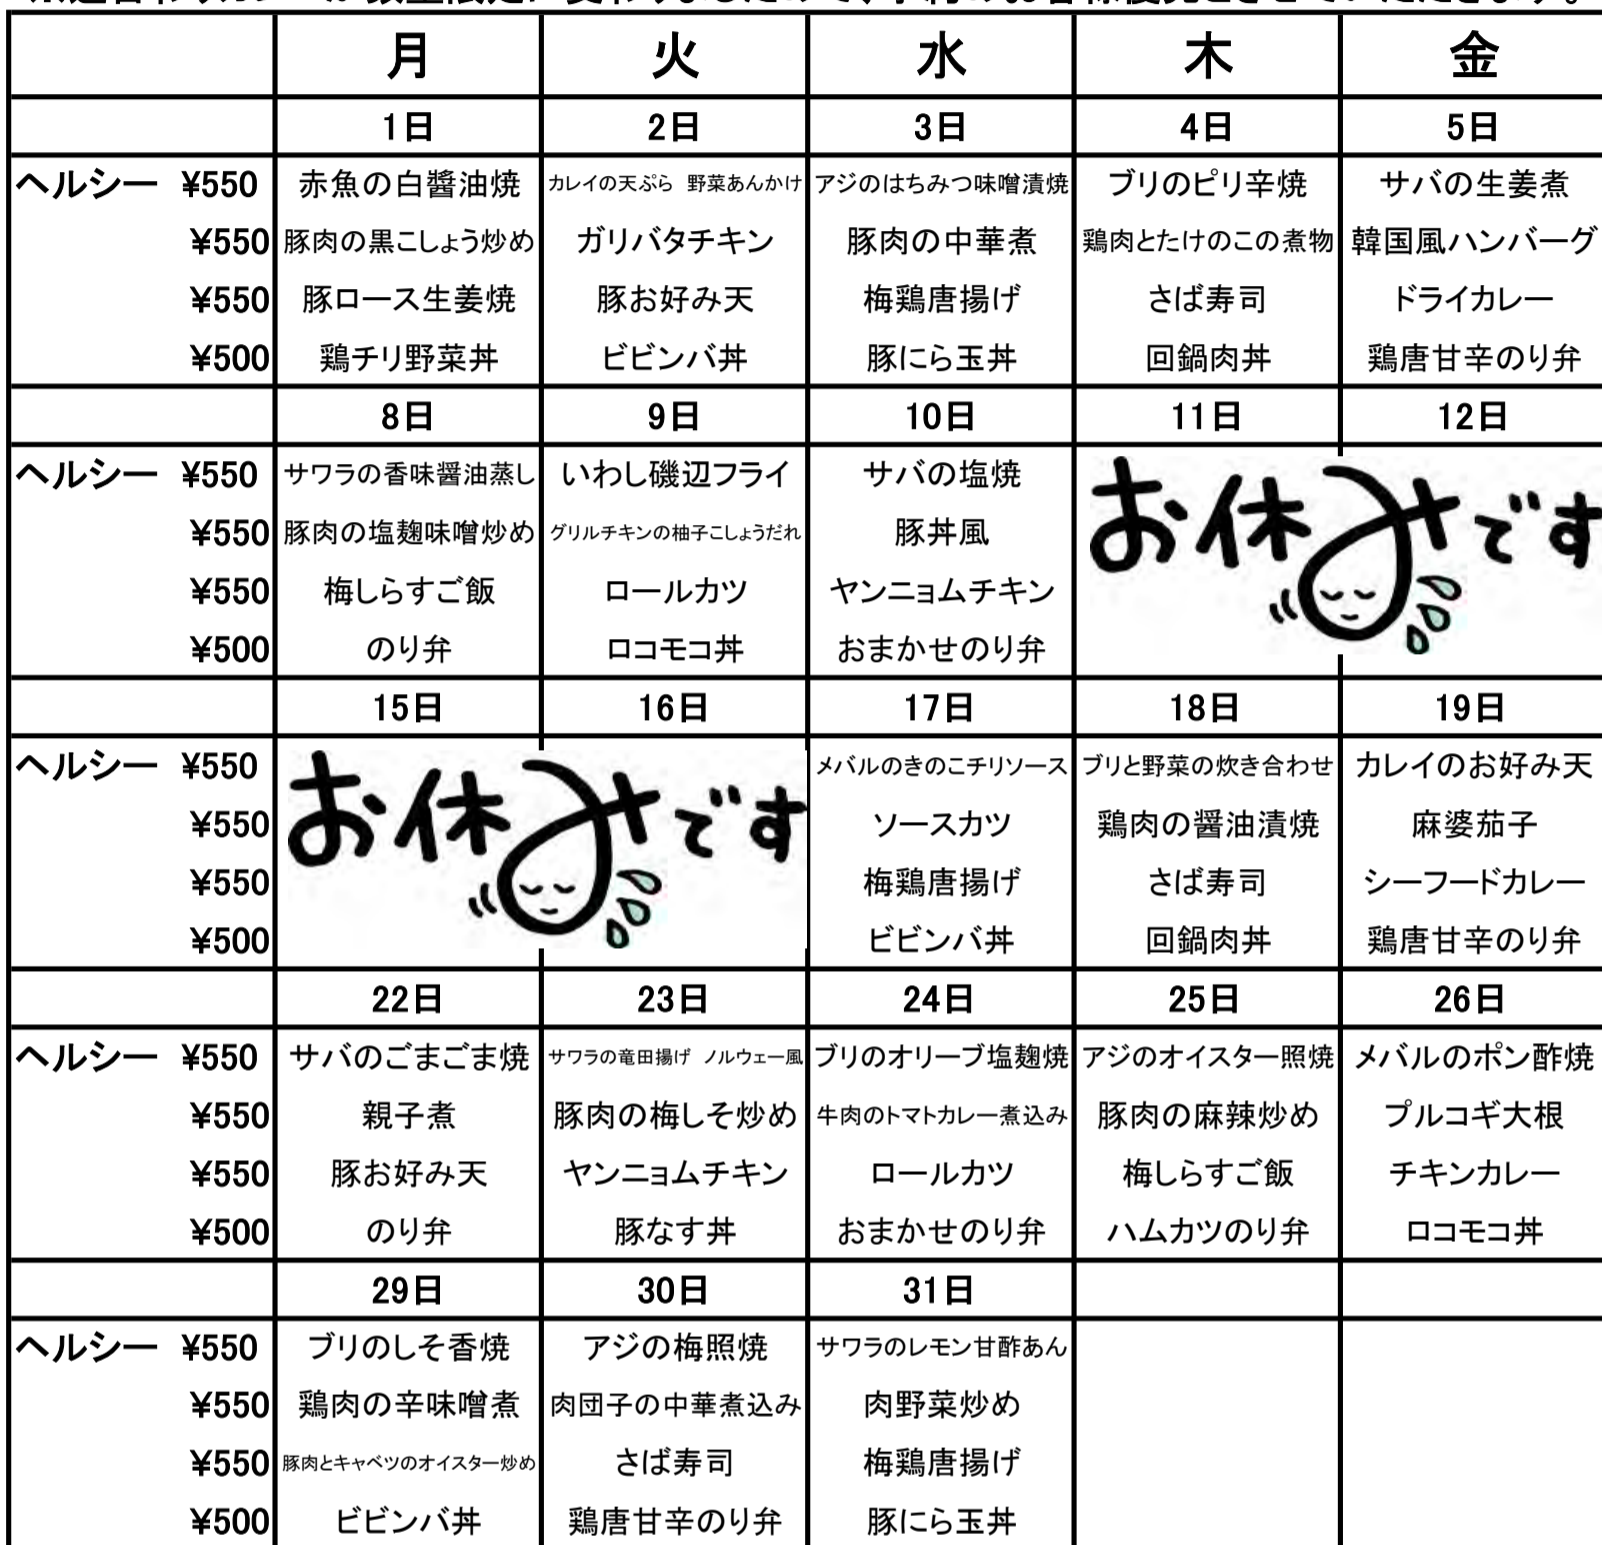 月 火 水 木 金
1日 2日 3日 4日 5日
ヘルシー ¥550 赤魚の白醤油焼 カレイの天ぷら 野菜あんかけ アジのはちみつ味噌漬焼 ブリのピリ辛焼 サバの生姜煮
¥550 豚肉の黒こしょう炒め ガリバタチキン 豚肉の中華煮 鶏肉とたけのこの煮物 韓国風ハンバーグ
¥550 豚ロース生姜焼 豚お好み天 梅鶏唐揚げ さば寿司 ドライカレー
¥500 鶏チリ野菜丼 ビビンバ丼 豚にら玉丼 回鍋肉丼 鶏唐甘辛のり弁
8日 9日 10日 11日 12日
ヘルシー ¥550 サワラの香味醤油蒸し いわし磯辺フライ サバの塩焼 お休みです
¥550 豚肉の塩麹味噌炒め グリルチキンの柚子こしょうだれ 豚丼風
¥550 梅しらすご飯 ロールカツ ヤンニョムチキン
¥500 のり弁 ロコモコ丼 おまかせのり弁
15日 16日 17日 18日 19日
ヘルシー ¥550 お休みです メバルのきのこチリソース ブリと野菜の炊き合わせ カレイのお好み天
¥550 ソースカツ 鶏肉の醤油漬焼 麻婆茄子
¥550 梅鶏唐揚げ さば寿司 シーフードカレー
¥500 ビビンバ丼 回鍋肉丼 鶏唐甘辛のり弁
22日 23日 24日 25日 26日
ヘルシー ¥550 サバのごまごま焼 サワラの竜田揚げ ノルウェー風 ブリのオリーブ塩麹焼 アジのオイスター照焼 メバルのポン酢焼
¥550 親子煮 豚肉の梅しそ炒め 牛肉のトマトカレー煮込み 豚肉の麻辣炒め プルコギ大根
¥550 豚お好み天 ヤンニョムチキン ロールカツ 梅しらすご飯 チキンカレー
¥500 のり弁 豚なす丼 おまかせのり弁 ハムカツのり弁 ロコモコ丼
29日 30日 31日
ヘルシー ¥550 ブリのしそ香焼 アジの梅照焼 サワラのレモン甘酢あん
¥550 鶏肉の辛味噌煮 肉団子の中華煮込み 肉野菜炒め
¥550 豚肉とキャベツのオイスター炒め さば寿司 梅鶏唐揚げ
¥500 ビビンバ丼 鶏唐甘辛のり弁 豚にら玉丼